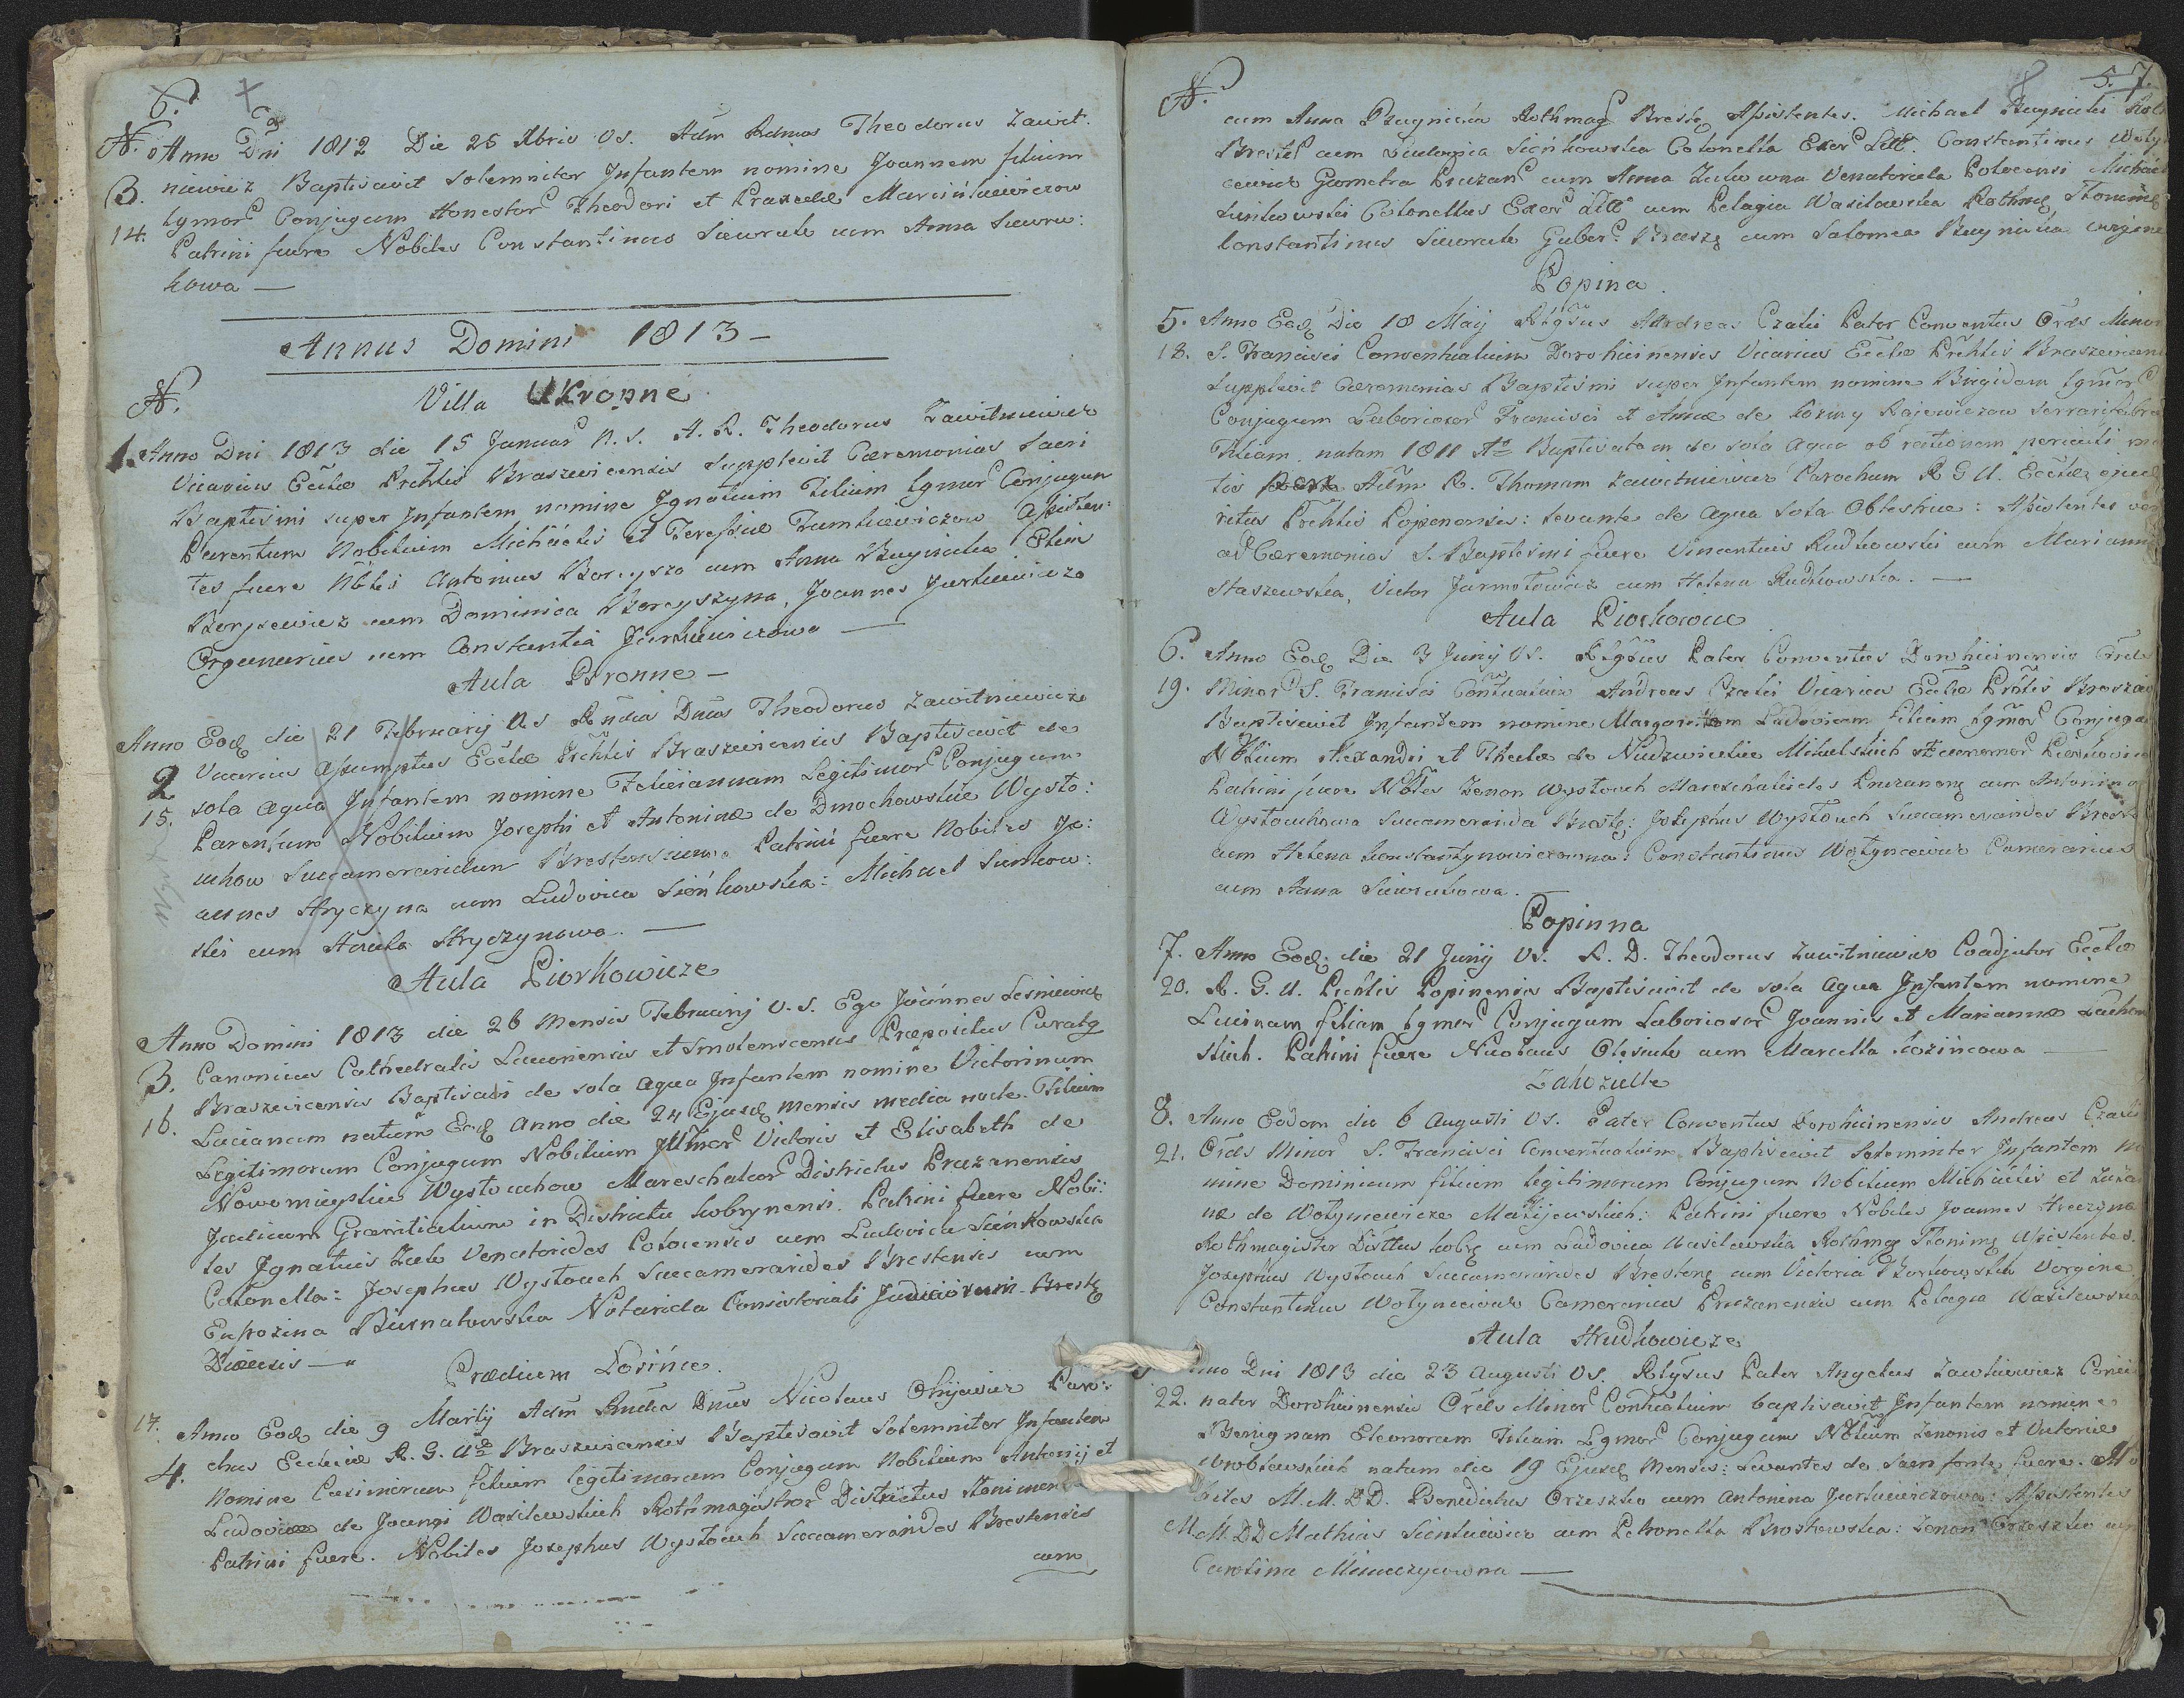 6.
N. Anno Dni 1812 Die 26 Xbris V.S. Adm Rdmus Theodorus Zawit.
13. niewicz Baptisavit Solemniter Infantem nomine Joannem filium
14. Lgmor Conjugum Honestor Theodori et Praxedae Marcińkiewiczow
Patrini fuere Nobiles Constantinus Siewruk cum Anna Siewru:
kowa —
Annus Domini 1813 —
N. Villa Ukropne
1. Anno Dni 1813 die 15 Januar n.s. A. R. Theodorus Zawitniewicz
Vicarius Ecclae Prchlis Braszewicensis supplevit Caeremonias Sacri
Baptismi super Infantem nomine Ignatium Filium Lgmor Conjugum
Parentum Nobilium Michaelis et Teressiae Tumkiewiczow Assisten:
tes fuere Nbles Antonius Borzyszo cum Anna Buynicka Etim
Borysewicz cum Dominica Borzyszyna, Joannes Jurkiewicz
Organarius cum Constantia Jurkiewiczowa —
Aula Pronne —
Anno Eod die 21 Februarij V.S Rndus Dnus Theodorus Zawitniewicz
2 Vicarius Assumptus Ecclae Prchlis Braszewicensis Baptisavit de
15. sola aqua Infantem nomine Feliciannam Legitimor Conjugum
Parentum Nobilium Josephi et Antoninae de Dmochowskie Wysło:
uchow Succameraridum Brestensium. Patrini fuere Nobiles Jo:
annes Hryczyna cum Ludovica Sieńkowska: Michael Sienkow:
ski cum Hryczynowa. —
Aula Piorkowicze
Anno Domini 1813 die 26 Mensis Februarij V.S. Ego Joannes Leśniewicz
3. Canonicus Cathedralis Livoniensis et Smolenscensis Praepositus Curatq
Braszewicensis Baptisavi de sola aqua Infantem nomine Victorinum
16. Lucianum natum Eod Anno die 24 Ejusd mensis media nocte. Filium
Legitimorum Conjugum Nobilium Illmor Victoris et Elisabeth de
Nowomieyskie Wysłouchow Mareschalcor Districtus Pruzanensis
Judicum Granitialium in Districtu Kobrynensi. Patrini fuere Nobi:
les Ignatius Zuk Venatorides Polocensis cum Ludovica Sieńkowska
Colonella: Josephus Wysłouch Succamerarides Brestensis cum
Eufrozina Biernatowska Notarida Consistoriali Judiciorum Brestq
Diaecesis —
Praedium Łosińce.
17. Anno Eod die 9 Martij Adm Rndus Dnus Nicolaus Ohijewicz Paro:
4. chus Ecclesiae R. G. Uae Braszewicensis Baptisavit Solemniter Infantem
nomine Casimirum filium legitimorum Conjugum Nobilium Antonij et
Ludovicae de Wasilewskich Rothmagistror Districtus Slonimen
Patrini fuere. Nobiles Josephus Wysłouch Succamerarides Brestensis
cum
N. 5. 7.
cum Anna Buynicka Rothmag Brestq Assistentes. Michael Buynicki
Brestes cum Eulogia Sieńkowska Colonella Exer Litt Constantinus Woły
cewicz Geometra Pruzan cum Anna Zukowna Venatorida Polocensi Michael
Sienkowski Colonellus Exer Litt cum Pelagia Wasilewska Rothmq Slonimq
Constantinus Siewruk Guber Brestq cum Salomea Buynicka virgine
Popina.
5. Anno Eodq Die 18 Maij Rlgsus Andreas Czalis Pater Conventus Ords Minor
18. S. Francisci Conventualium Dorohicinensis Vicarius Ecclae Prchlis Braszewicens
supplevit Caeremonias Baptismi super Infantem nomine Brigidam Lgmor
Conjugum Laboriosor Francisci et Annae de Koziny Rajewiczow
Filiam natam 1811 Ao Baptisatam de sola aqua ob rationem periculi mor
tis Adm R. Thomam Zawitniewicz Parochum R G U. Ecclae ejusd
ritus Prchlis Popenensis: levante de aqua sola Obstetrice: Assistentes vero
ad Caeremonias S. Baptismi fuere Vincentius Rudkowski cum Marianna
Staszewska, Victor Jarmołowicz cum Helena Rudkowska. —
Aula Piorkowicze
6. Anno Eodq Die 3 Junij V.S. Rlgsus Pater Conventus Dorohicinensis Ords
19. Minor S. Francisci Contualium Andreas Czalis Vicarius Ecclae Prchlis Braszew
Baptisavit Infantem nomine Margaritam Ludovicam filiam Lgmor Conjugu
Nblium Alexandri et Theclae de Niedzwieckie Michalskich
Patrini fuere Nbles Zenon Wysłouch Mareschalcides Pruzanenq cum Antonina
Wysłouchowa Succamerarida Brestq: Josephus Wysłouch Succamerarides Brest
cum Helena Konstantynowiczowna: Constantinus Wołyncewicz Camerarius
cum Anna Siewrukowa.
Popinna
7. Anno Eodq die 21 Junij V.S. R. D. Theodorus Zawitniewicz Coadjutor Ecclae
20. R. G. U. Prchlis Popinensis Baptisavit de sola aqua Infantem nomine
Lucinam filiam Lgmor Conjugum Laboriosor Joannis et Mariannae
skich. Patrini fuere Nicolaus Olesiuk cum Marcella Łozińcowa —
Zakozielle
8. Anno Eodem die 6 Augusti V.S. Pater Conventus Dorohicinensis Andreas Czalis
21. Ords Minor S. Francisci Conventualium Baptisavit Solemniter Infantem no
mine Dominicum filium legitimorum Conjugum Nobilium Michaelis et Zuzan
nae de Wołyncewicze Matijewskich: Patrini fuere Nobiles Joannes Hreczyna
Rothmagister Disttus Kobrq cum Ludovica Wasilewska Rothmq Słonimq Assistentes.
Josephus Wysłouch Succamerarides Brestenq cum Victoria Borkowska Virgine.
Constantinus Wołyncewicz Camerarius Pruzanensis cum Pelagia Wasilewska
Aula Hrudkowicze
Anno Dni 1813 die 23 Augusti V.S. Rlgsus Pater Anyelus Zawkiewicz Concio
22. nator Dorohicinensis Ords Minor Contualium baptisavit Infantem nomine
Benignam Eleonoram Filiam Lgmor Conjugum Nblium Zenonis et Victoriae
Wroblewskich natam die 19 Ejusd Mensis: Levantes de Sacro fonte fuere. No
biles M. M. DD. Benedictus Orzeszko cum Antonina Jurkiewiczowa: Assistentes
M.M. DD Mathias Sienkiewicz cum Petronella Broskowska: Zenon Orzeszko cum
Carolina